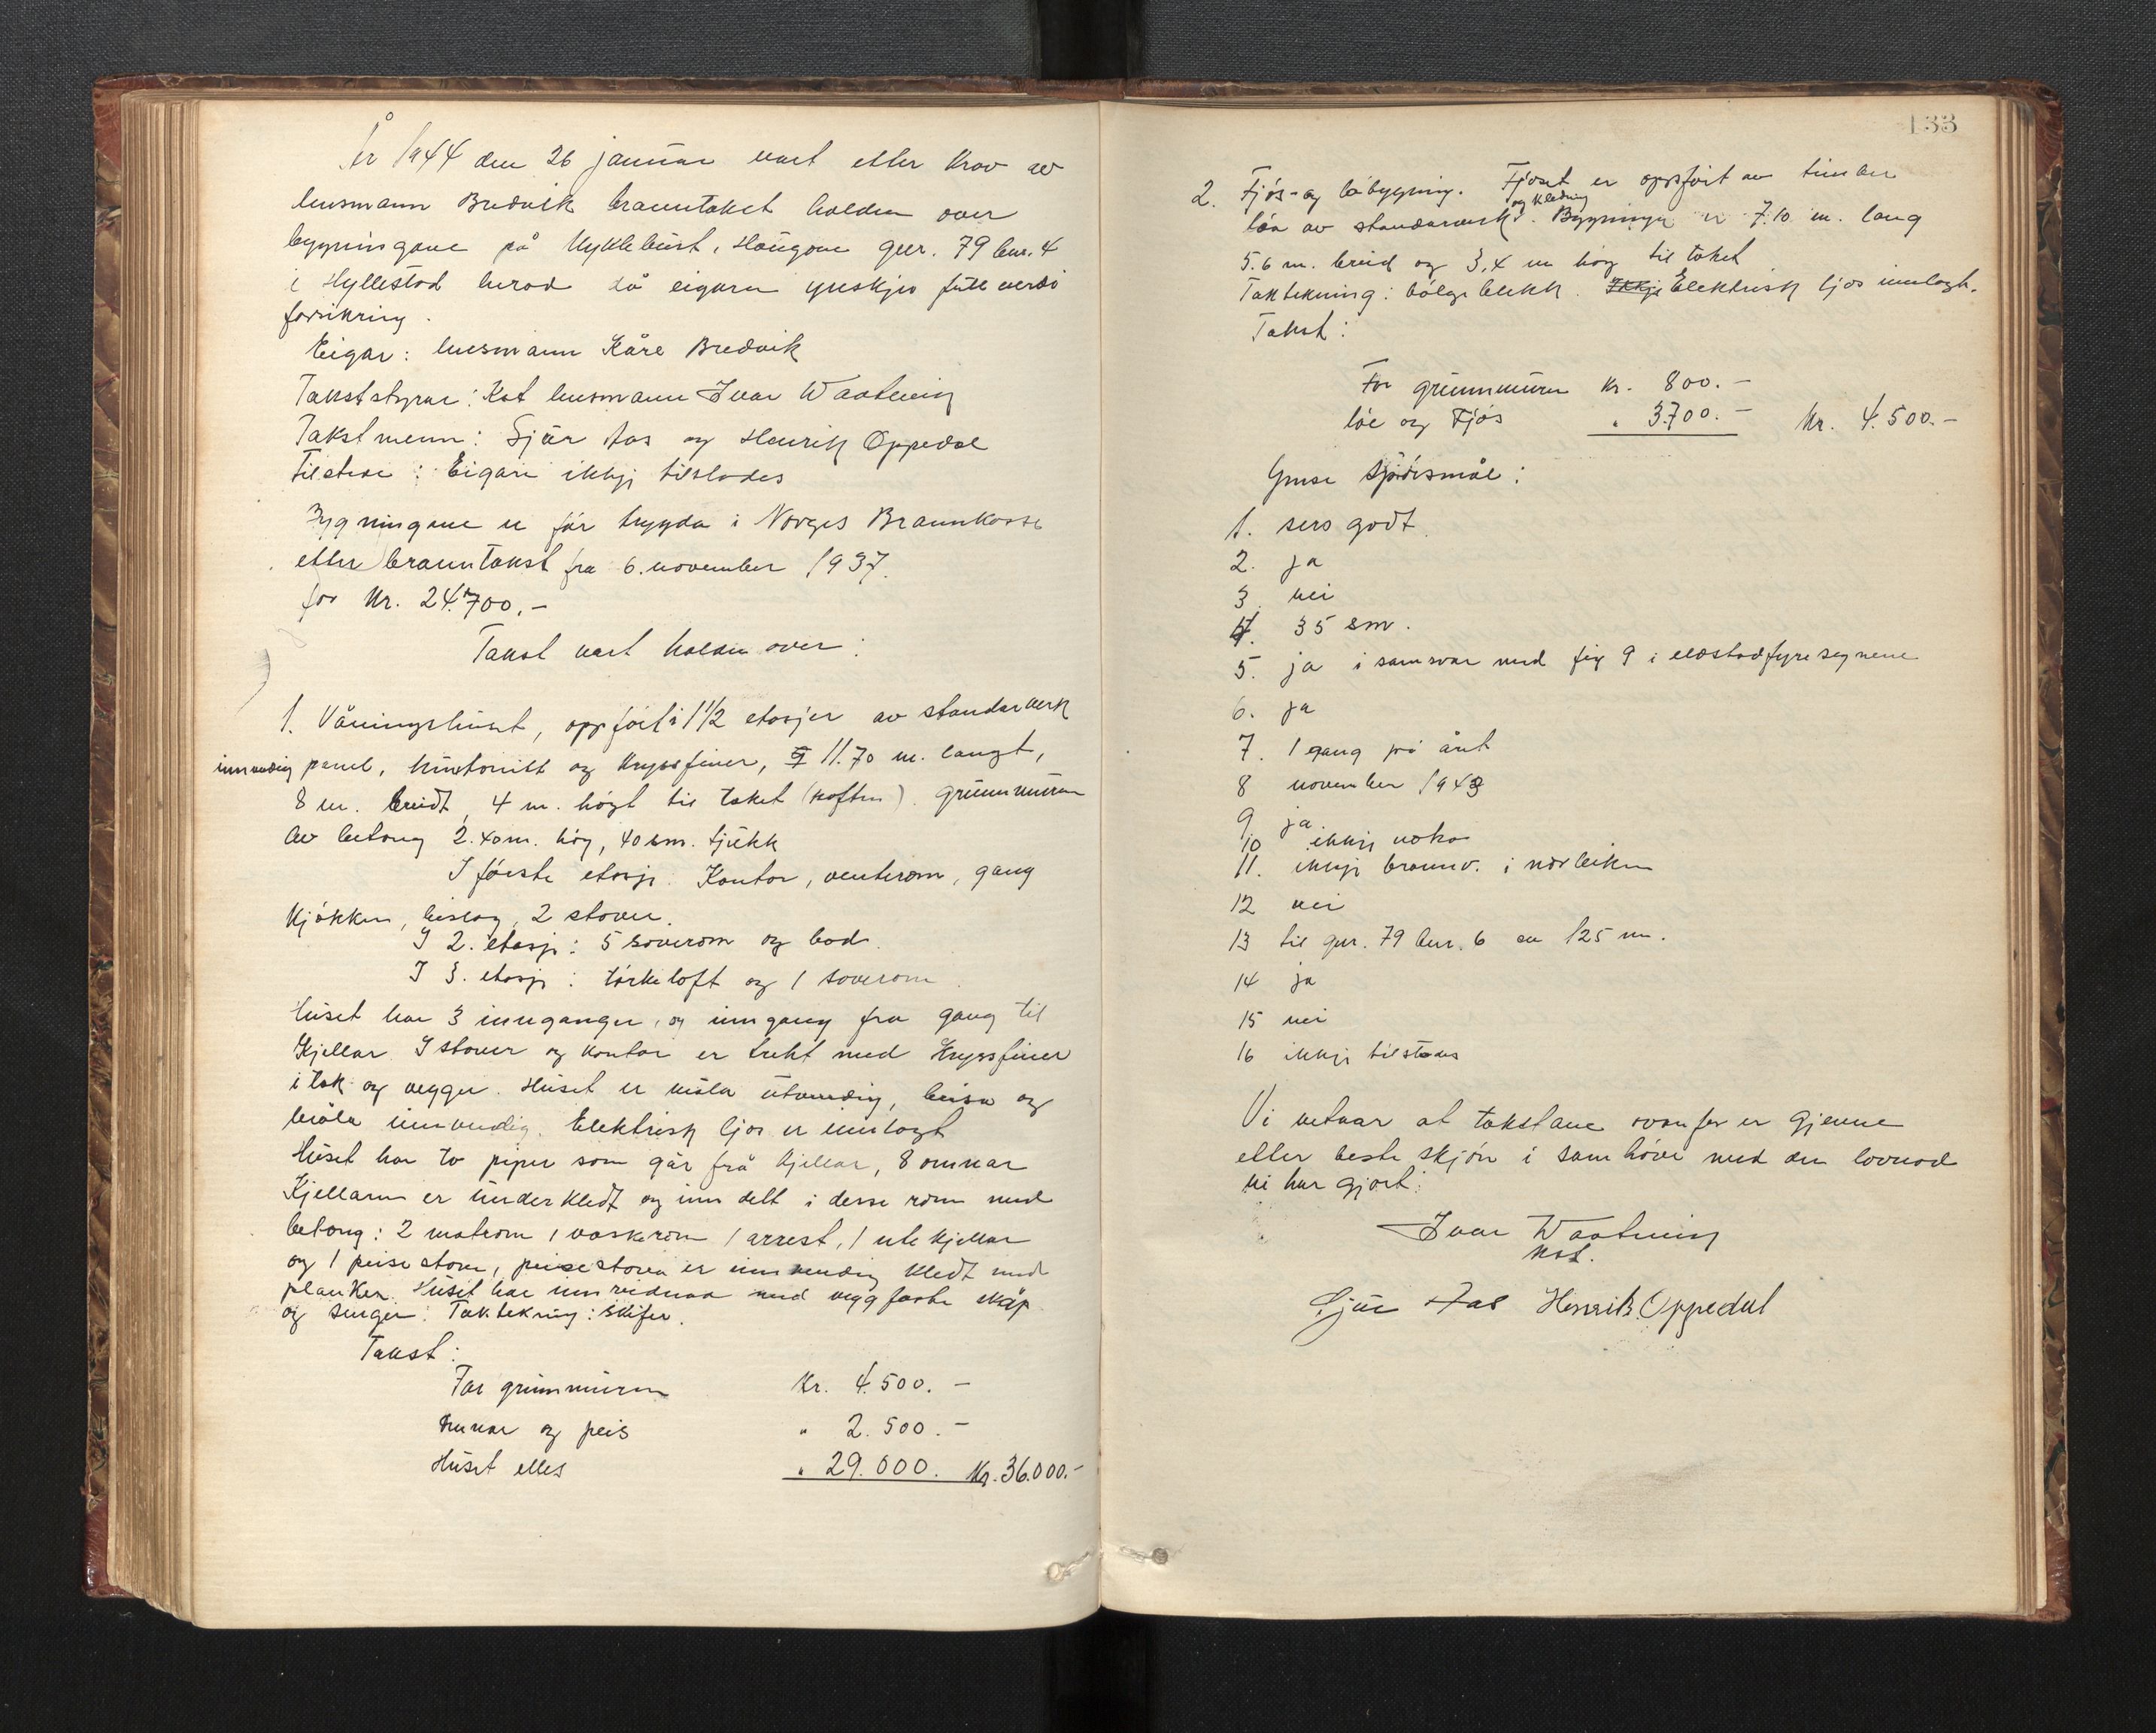 År 1944 den 26 januar vart etter krav av
lensmann Bredvik branntakst halden over
bygningane på Myklebust, Haugane gnr. 79 bnr. 4
i Hyllestad herad då eigaren ynskjer full verdi
forsikring.
Eigar: lensmann Kåre Bredvik
Takststyrar: Kst lensmann Ivar
Takstmenn: Sjur Aas og Henrik Oppedal
Tilstede: Eigari ikkje tilstades
Bygningane er før trygda i Norges Brannkasse
etter branntakst fra 6. november 1937.
for kr. 24.700.-
Takst vart halden over:
1. Våningshuset, oppført i 1 1/2 etasjer av standarverk
innvendig panel, huntonitt og kryssfiner, 11.70 m. langt,
8 m. breidt, 4 m. høgt til taket (raften). Grunnmuren
av betong 2.40 m. høg, 40 sm. tjukk
I første etasje: Kontor, venterom, gang
kjøkken, bislag, 2 stover.
I 2. etasje: 5 soverom og bad.
I 3. etasje: tørkeloft og 1 soverom.
Huset har 3 innganger, og inngang fra gang til
Kjellar. I stover og kontor er trekt med Kryssfiner
i tak og vegger. Huset er måla utvendig, beisa og
måla innvendig. Elektrisk ljos er innlagt
Huset har to piper som går frå kjellar, 8 omnar
Kjellaren er underkledt og inndelt i desse rom med
betong: 2 matrom 1 vaskerom 1 arrest, 1 utekjellar
og 1 peisestove, peisestova er innvendig kledt med
planker. Huset har innreidnad med veggfaste skåp
og senger. Taktekning: skifer.
Takst:
For grunnmuren Kr. 4.500.-
Omnar og peis " 2.500.-
Huset elles " 29.000. Kr. 36.000.-
133
2. Fjøs- og løbygning. Fjøset er oppført av timber
og kledning
løa av standarverk. Bygningen er 7.10 m. lang
5.6 m. breid og 3,4 m høg til taket
Taktekning: bølgeblekk. Ikkje Elektrisk ljos innlagt.
Takst:
For grunnmuren kr. 800.-
løe og Fjøs " 3.700.- Kr. 4.500.-
Ymse spørsmål:
1. sers godt
2. ja
3. nei
4. 35 sm.
5. ja i samsvar med fig 9 i eldstadfyresegnene
6. ja
7. 1 gang på året
8 november 1943
9 ja
10 ikkje noko
11. ikkje brannv. i nærleiken
12 nei
13 til gnr. 79 bnr. 6 ca 125 m.
14 ja
15 nei
16 ikkje tilstades
Vi vitnar at takstane ovanfor er gjevne
etter beste skjøn i samhøve med den lovnad
vi har gjort.
Ivar
Kst.
Sjur Aas Henrik Oppedal